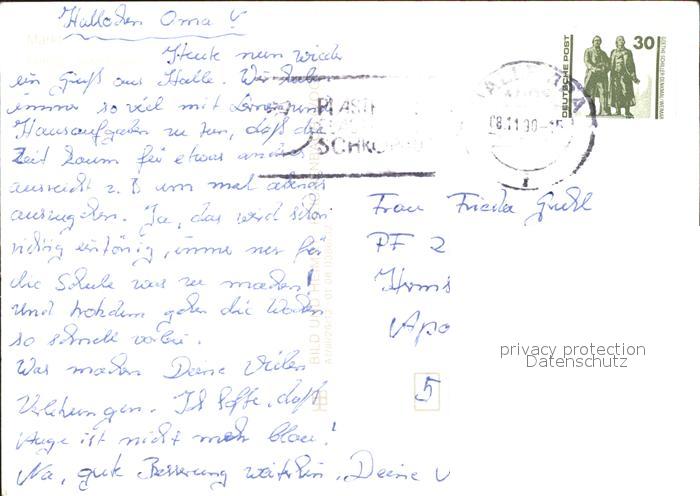 Hallochen Oma!
Heute nun wieder
ein Gruß aus Halle. Wir haben
immer so viel mit Lernen und
Hausaufgaben zu tun, daß die
Zeit kaum für etwas anderes
ausreicht z. B. um mal abends
auszugehen. Ja, das wird schon
richtig eintönig, immer nur für
die Schule was zu machen!
Und trotzdem gehen die Wochen
so schnell vorbei.
Was machen Deine vielen
Verletzungen. Ich hoffe, daß
Auge ist nicht mehr blau!
Na, gute Besserung weiterhin. Deine
DEUTSCHE POST
30
GOETHE-SCHILLER-DENKMAL WEIMAR
08.11.90-15
PLASTI
SCHKO
Frau Frieda
PF 2
Apo
5
BILD UND HEIM
privacy protection
Datenschutz